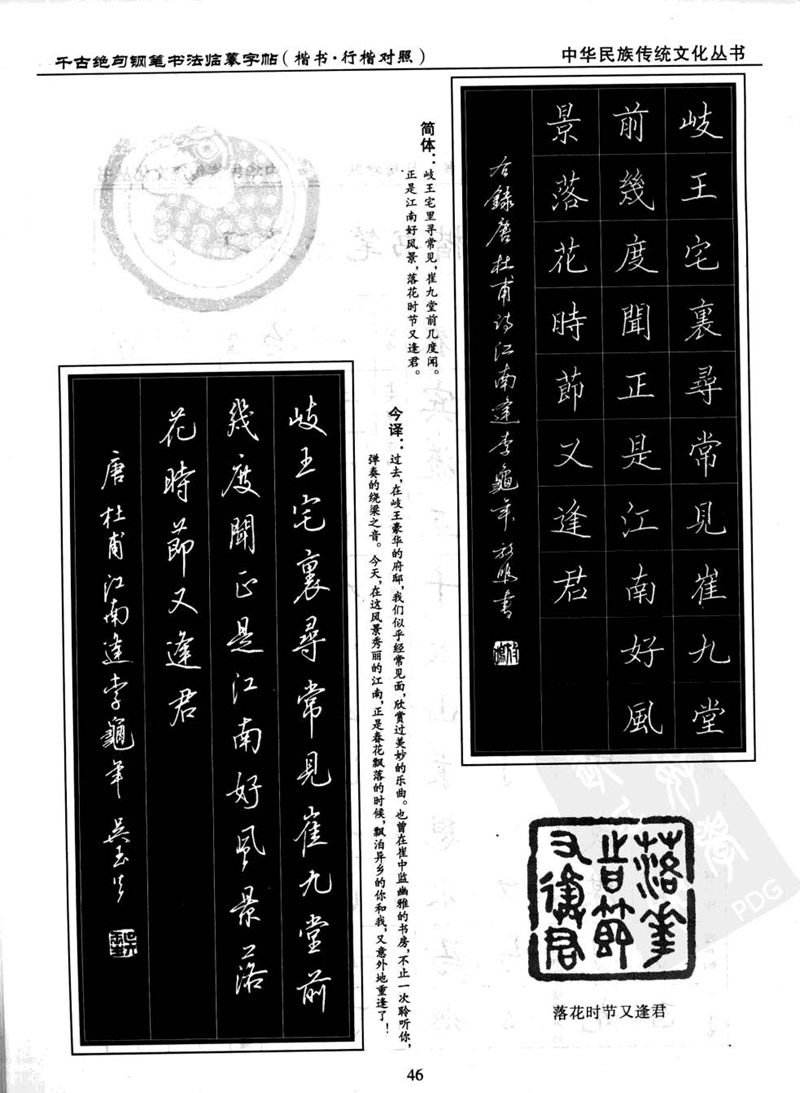 千古绝句钢笔书法临摹字帖（楷书·行楷对照）
中华民族传统文化丛书
岐王宅裏尋常見崔九堂
前幾度聞正是江南好風
景落花時節又逢君
右錄唐杜甫詩江南逢李龜年
書
简体：岐王宅里寻常见，崔九堂前几度闻。
正是江南好风景，落花时节又逢君。
今译：过去，在岐王豪华的府邸，我们似乎经常见面，欣赏过美妙的乐曲。也曾在崔中监幽雅的书房，不止一次聆听你，
弹奏的绕梁之音。今天，在这风景秀丽的江南，正是春花飘落的时候，飘泊异乡的你和我，又意外地重逢了！
岐王宅裏尋常見崔九堂前
幾度聞正是江南好風景落
花時節又逢君
唐杜甫江南逢李龜年 吴玉生
落花
時節
又逢君
落花时节又逢君
46
PDG